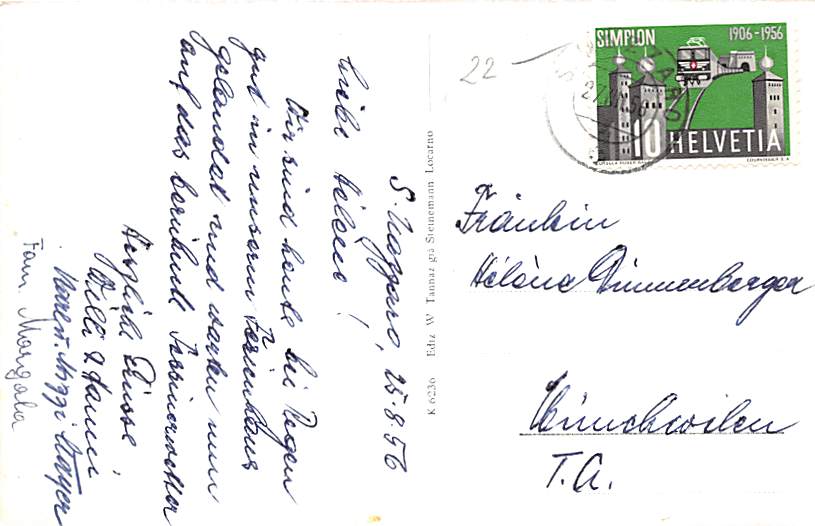 S. Nazzaro, 25.8.56
Liebe Helene!
Wir sind heute bei Regen
gut in unserm Ferienhaus
gelandet und warten nun
auf das berühmte Tessinerwetter
Herzliche Grüsse,
Willi & Hanni
Fam.
K 6236 Ediz W Tannaz già Steinemann Locarno
22
SIMPLON 1906-1956
10 HELVETIA
COURVOISIER S.A.
Fräulein
Hélène Dünnenberger
Münchwilen
T.G.